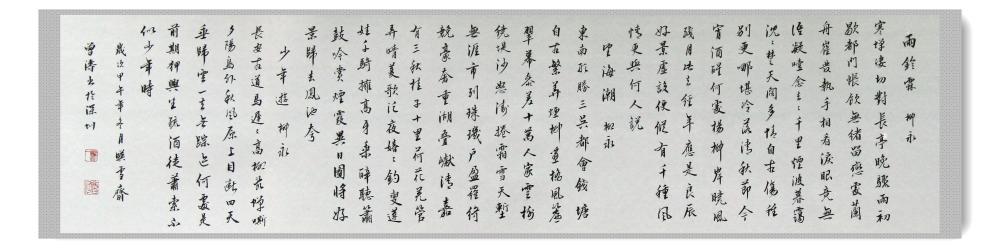 雨鈴霖 柳永
寒蟬凄切對長亭晚驟雨初
歇都門帳飲無緒留戀處蘭
舟催發執手相看淚眼竟無
語凝噎念去去千里煙波暮靄
沉沉楚天闊多情自古傷離
別更那堪冷落清秋節今
宵酒醒何處楊柳岸曉風
殘月此去經年應是良辰
好景虛設便縱有千種風
情更與何人說
望海潮 柳永
東南形勝三吳都會錢塘
自古繁華煙柳畫橋風簾
翠幕參差十萬人家雲樹
繞堤沙怒濤捲霜雪天塹
無涯市列珠璣戶盈羅綺
競豪奢重湖疊巘清嘉
有三秋桂子十里荷花羌管
弄晴菱歌泛夜嬉嬉釣叟蓮
娃千騎擁高牙乘醉聽蕭
鼓吟賞煙霞異日圖將好
景歸去鳳池夸
少年遊 柳永
長安古道馬遲遲高柳亂蟬嘶
夕陽鳥外秋風原上目斷四天
垂歸雲一去無蹤迹何處是
前期狎興生疏酒徒蕭索不
似少年時
歲次甲午年冬月映雪齋
曾濤書於深圳